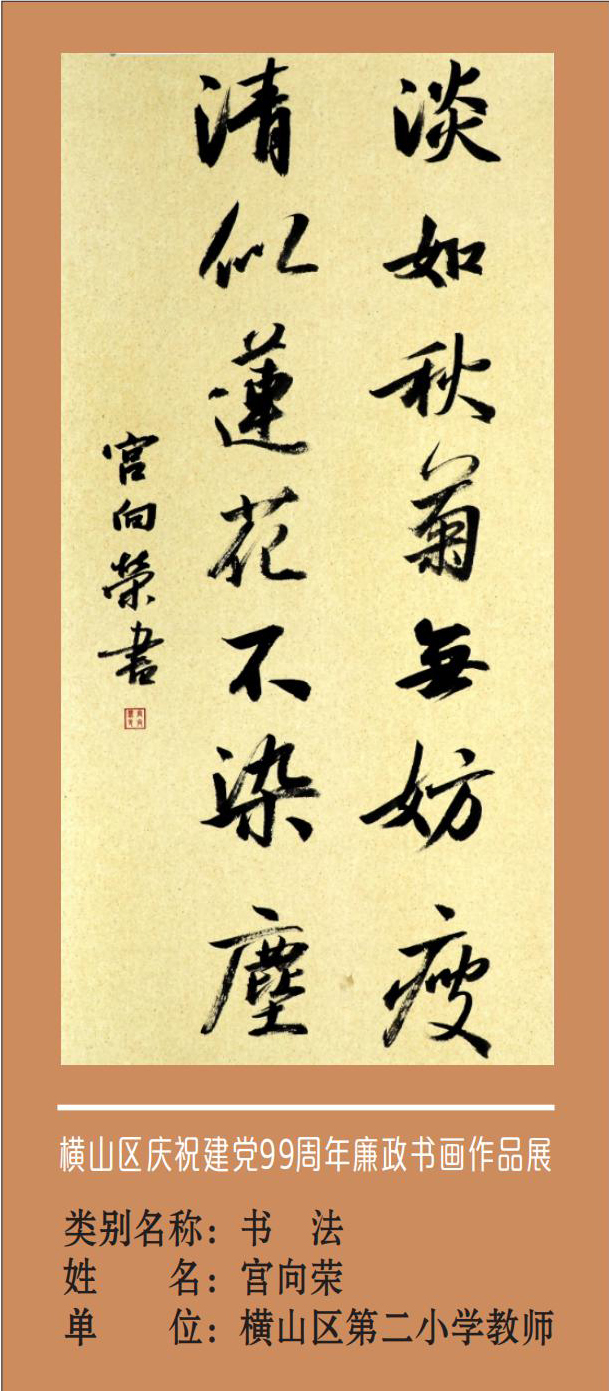 淡如秋菊無妨瘦
清似蓮花不染塵
宫向榮書
横山区庆祝建党99周年廉政书画作品展
类别名称：书　法
姓　　名：宫向荣
单　　位：横山区第二小学教师